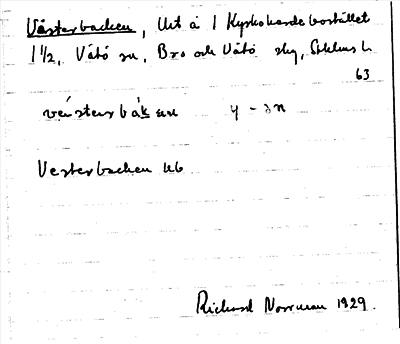 Västerbacken, Utt å 1 Kyrkoherdebostället
1 1/2, Vätö sn, Bro och Vätö skg, Sthlms l.
63
västerbákkən y-ən
Vesterbacken Ub
Richard Norrman 1929.